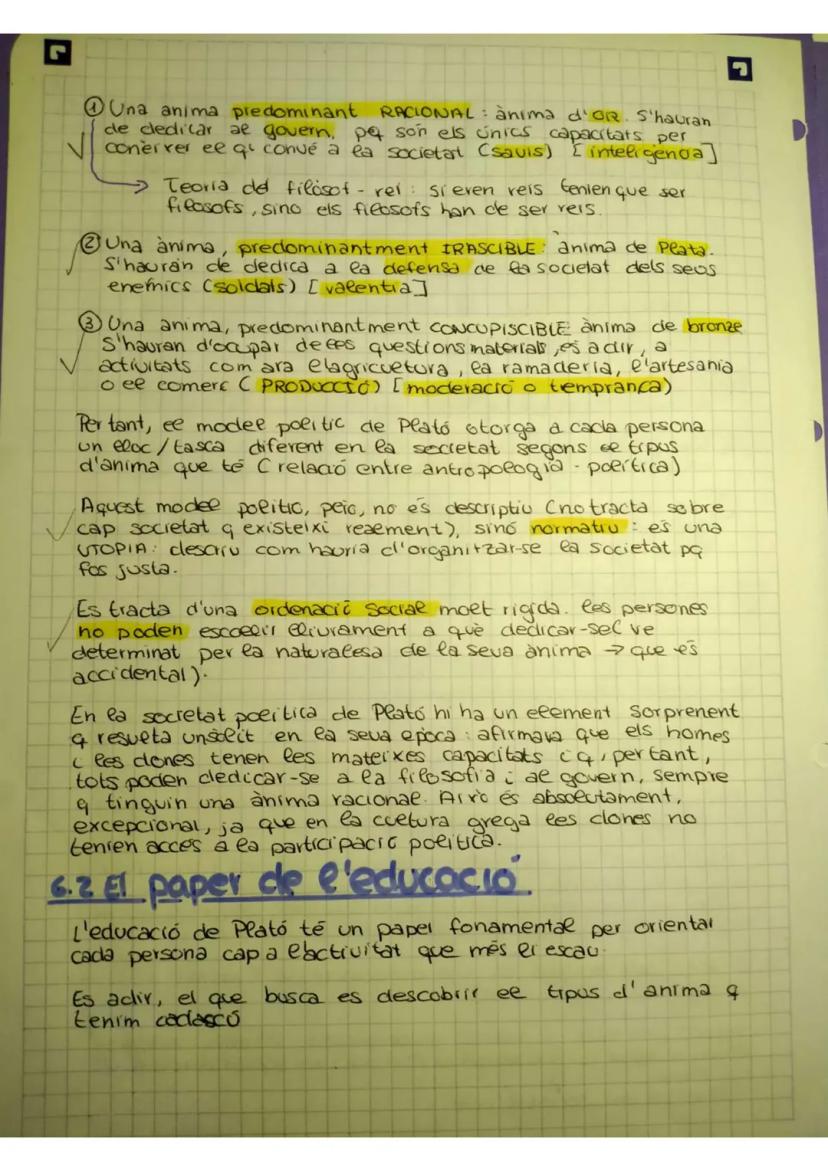 ① Una anima predominant RACIONAL : ànima d'OR. S'hauran
de dedicar al govern, pq són els únics capacitats per
conèixer el q convé a la societat (savis) [inteligència]
→ Teoria del filòsof - rei : si even reis tenien que ser
filosofs, sino els filosofs han de ser reis.
② Una ànima, predominantment IRASCIBLE: ànima de Plata.
S'hauràn de dedica a la defensa de la societat dels seus
enemics (soldats) [valentia]
③ Una anima, predominantment CONCUPISCIBLE: ànima de bronze
S'hauran d'ocupar de les questions materials, es a dir, a
activitats com ara el agricultura, la ramaderia, l'artesania
o el comerç ( PRODUCCIÓ) [moderació o temprança)
Per tant, el model polític de Plató otorga a cada persona
un lloc / tasca diferent en la societat segons el tipus
d'anima que té ( relació entre antropologia - política)
Aquest model polític, però, no és descriptiu (no tracta sobre
cap societat q existeixi realment), sinó normatiu : és una
UTOPIA: descriu com hauria d'organitzar-se la societat pq
fos justa.
Es tracta d'una ordenació social molt rigida. les persones
no poden escollir lliurament a què dedicar-se( ve
determinat per la naturalesa de la seva ànima → que és
accidental).
En la societat política de Plató hi ha un element sorprenent
q resulta unsòlit en la seva epoca : afirmava que els homes
i les dones tenen les mateixes capacitats i q, per tant,
tots poden dedicar-se a la filosofia i al govern, sempre
q tinguin una ànima racional. Això és absolutament,
excepcional, ja que en la cultura grega les dones no
tenien accés a la participació política.
6.2 El paper de l'educació
L'educació de Plató té un paper fonamental per orientar
cada persona cap a l'activitat que més li escau
Es a dir, el que busca es descobrir el tipus d'anima q
tenim cadascó